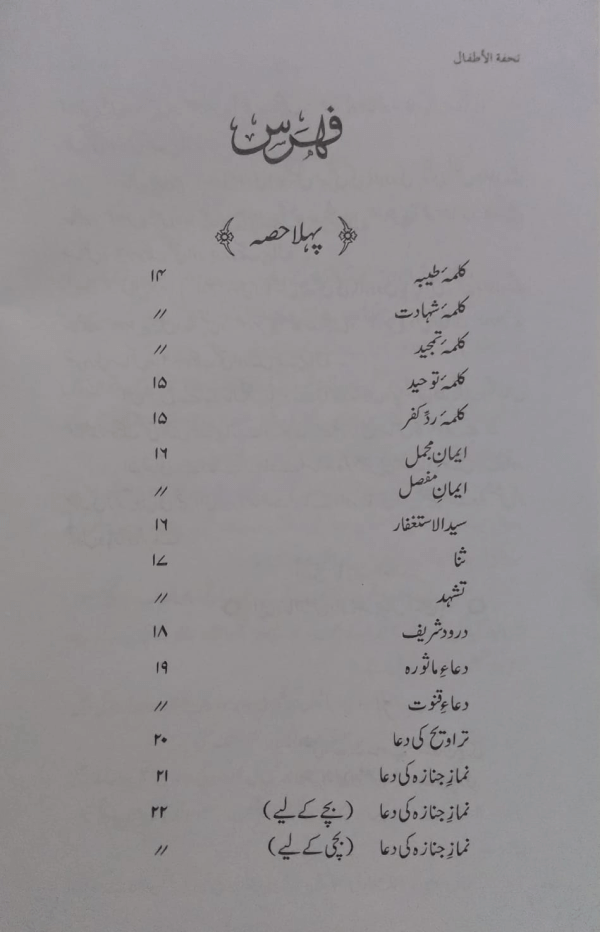 تحفة الأطفال
فہرس
﴿ پہلا حصہ ﴾
کلمۂ طیبہ ۱۴
کلمۂ شہادت //
کلمۂ تمجید //
کلمۂ توحید ۱۵
کلمۂ ردِّ کفر ۱۵
ایمانِ مجمل ۱۶
ایمانِ مفصل //
سید الاستغفار ۱۶
ثنا ۱۷
تشہد //
درود شریف ۱۸
دعاءِ ماثورہ ۱۹
دعاءِ قنوت //
تراویح کی دعا ۲۰
نمازِ جنازہ کی دعا ۲۱
نمازِ جنازہ کی دعا (بچے کے لیے) ۲۲
نمازِ جنازہ کی دعا (بچی کے لیے) //